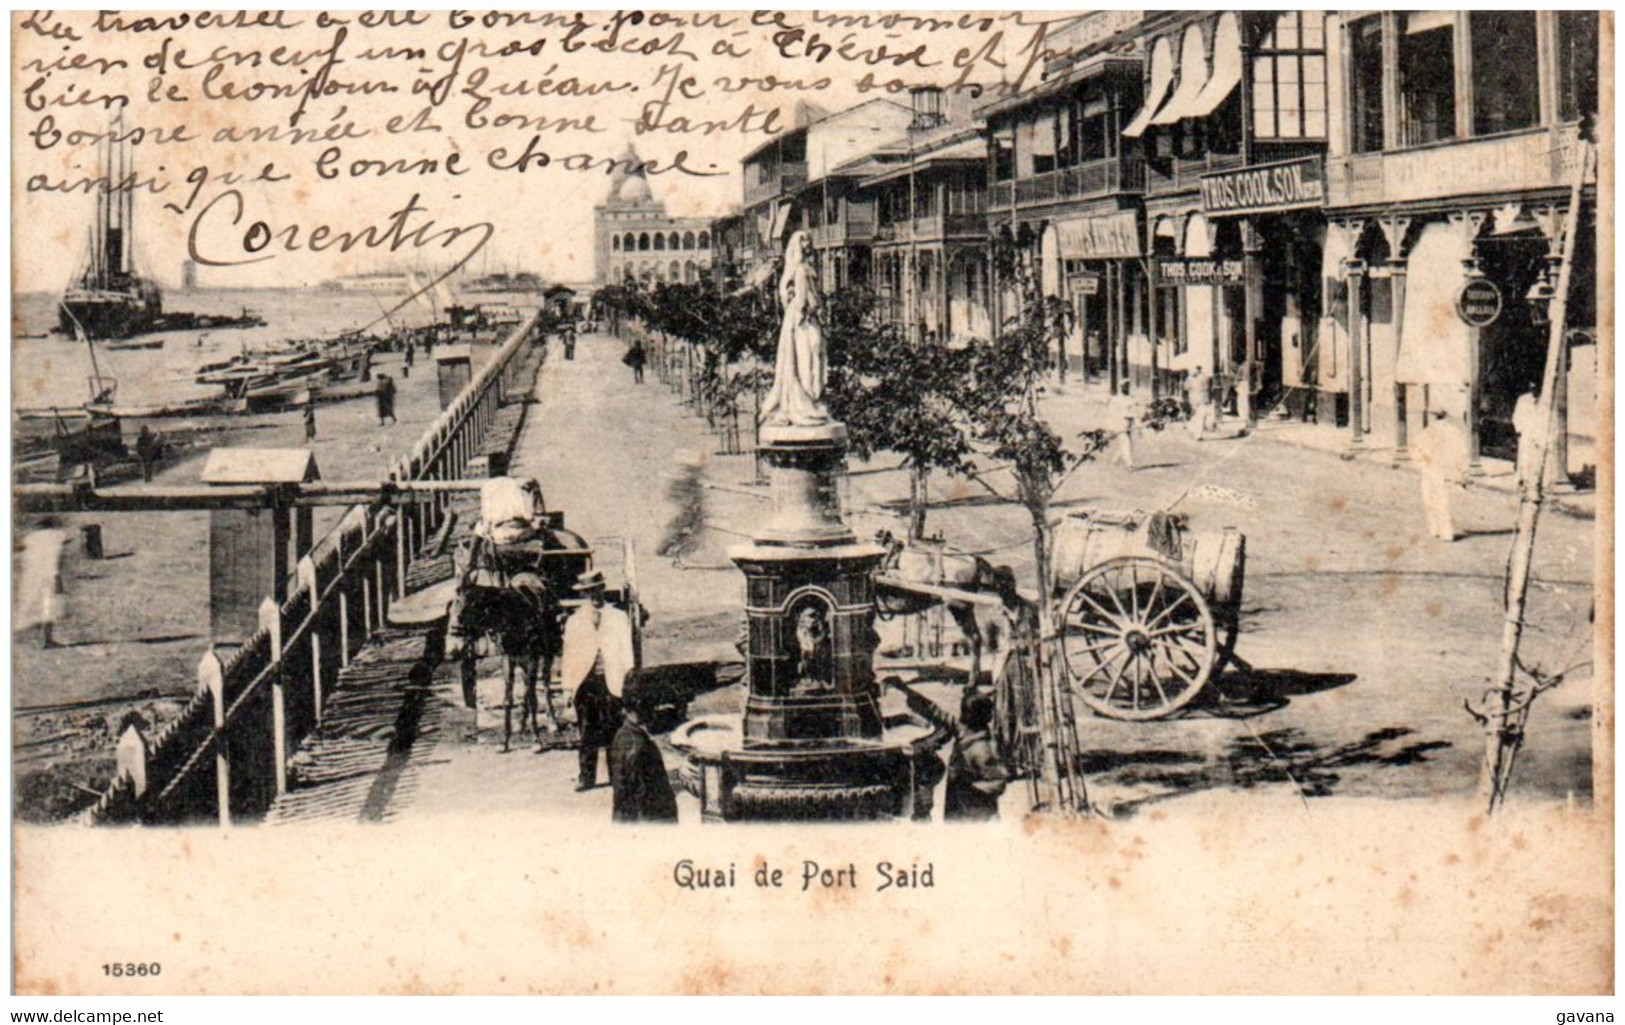 La traversée a été bonne pour le moment
rien de neuf un gros becot à Thérèse et puis
bien le bonjour à Quéau. Je vous souhaite
bonne année et bonne santé
ainsi que bonne chance.
Corentin
THOS. COOK & SON
THOS. COOK & SON
Quai de Port Said
15360
gavana
https://www.delcampe.net